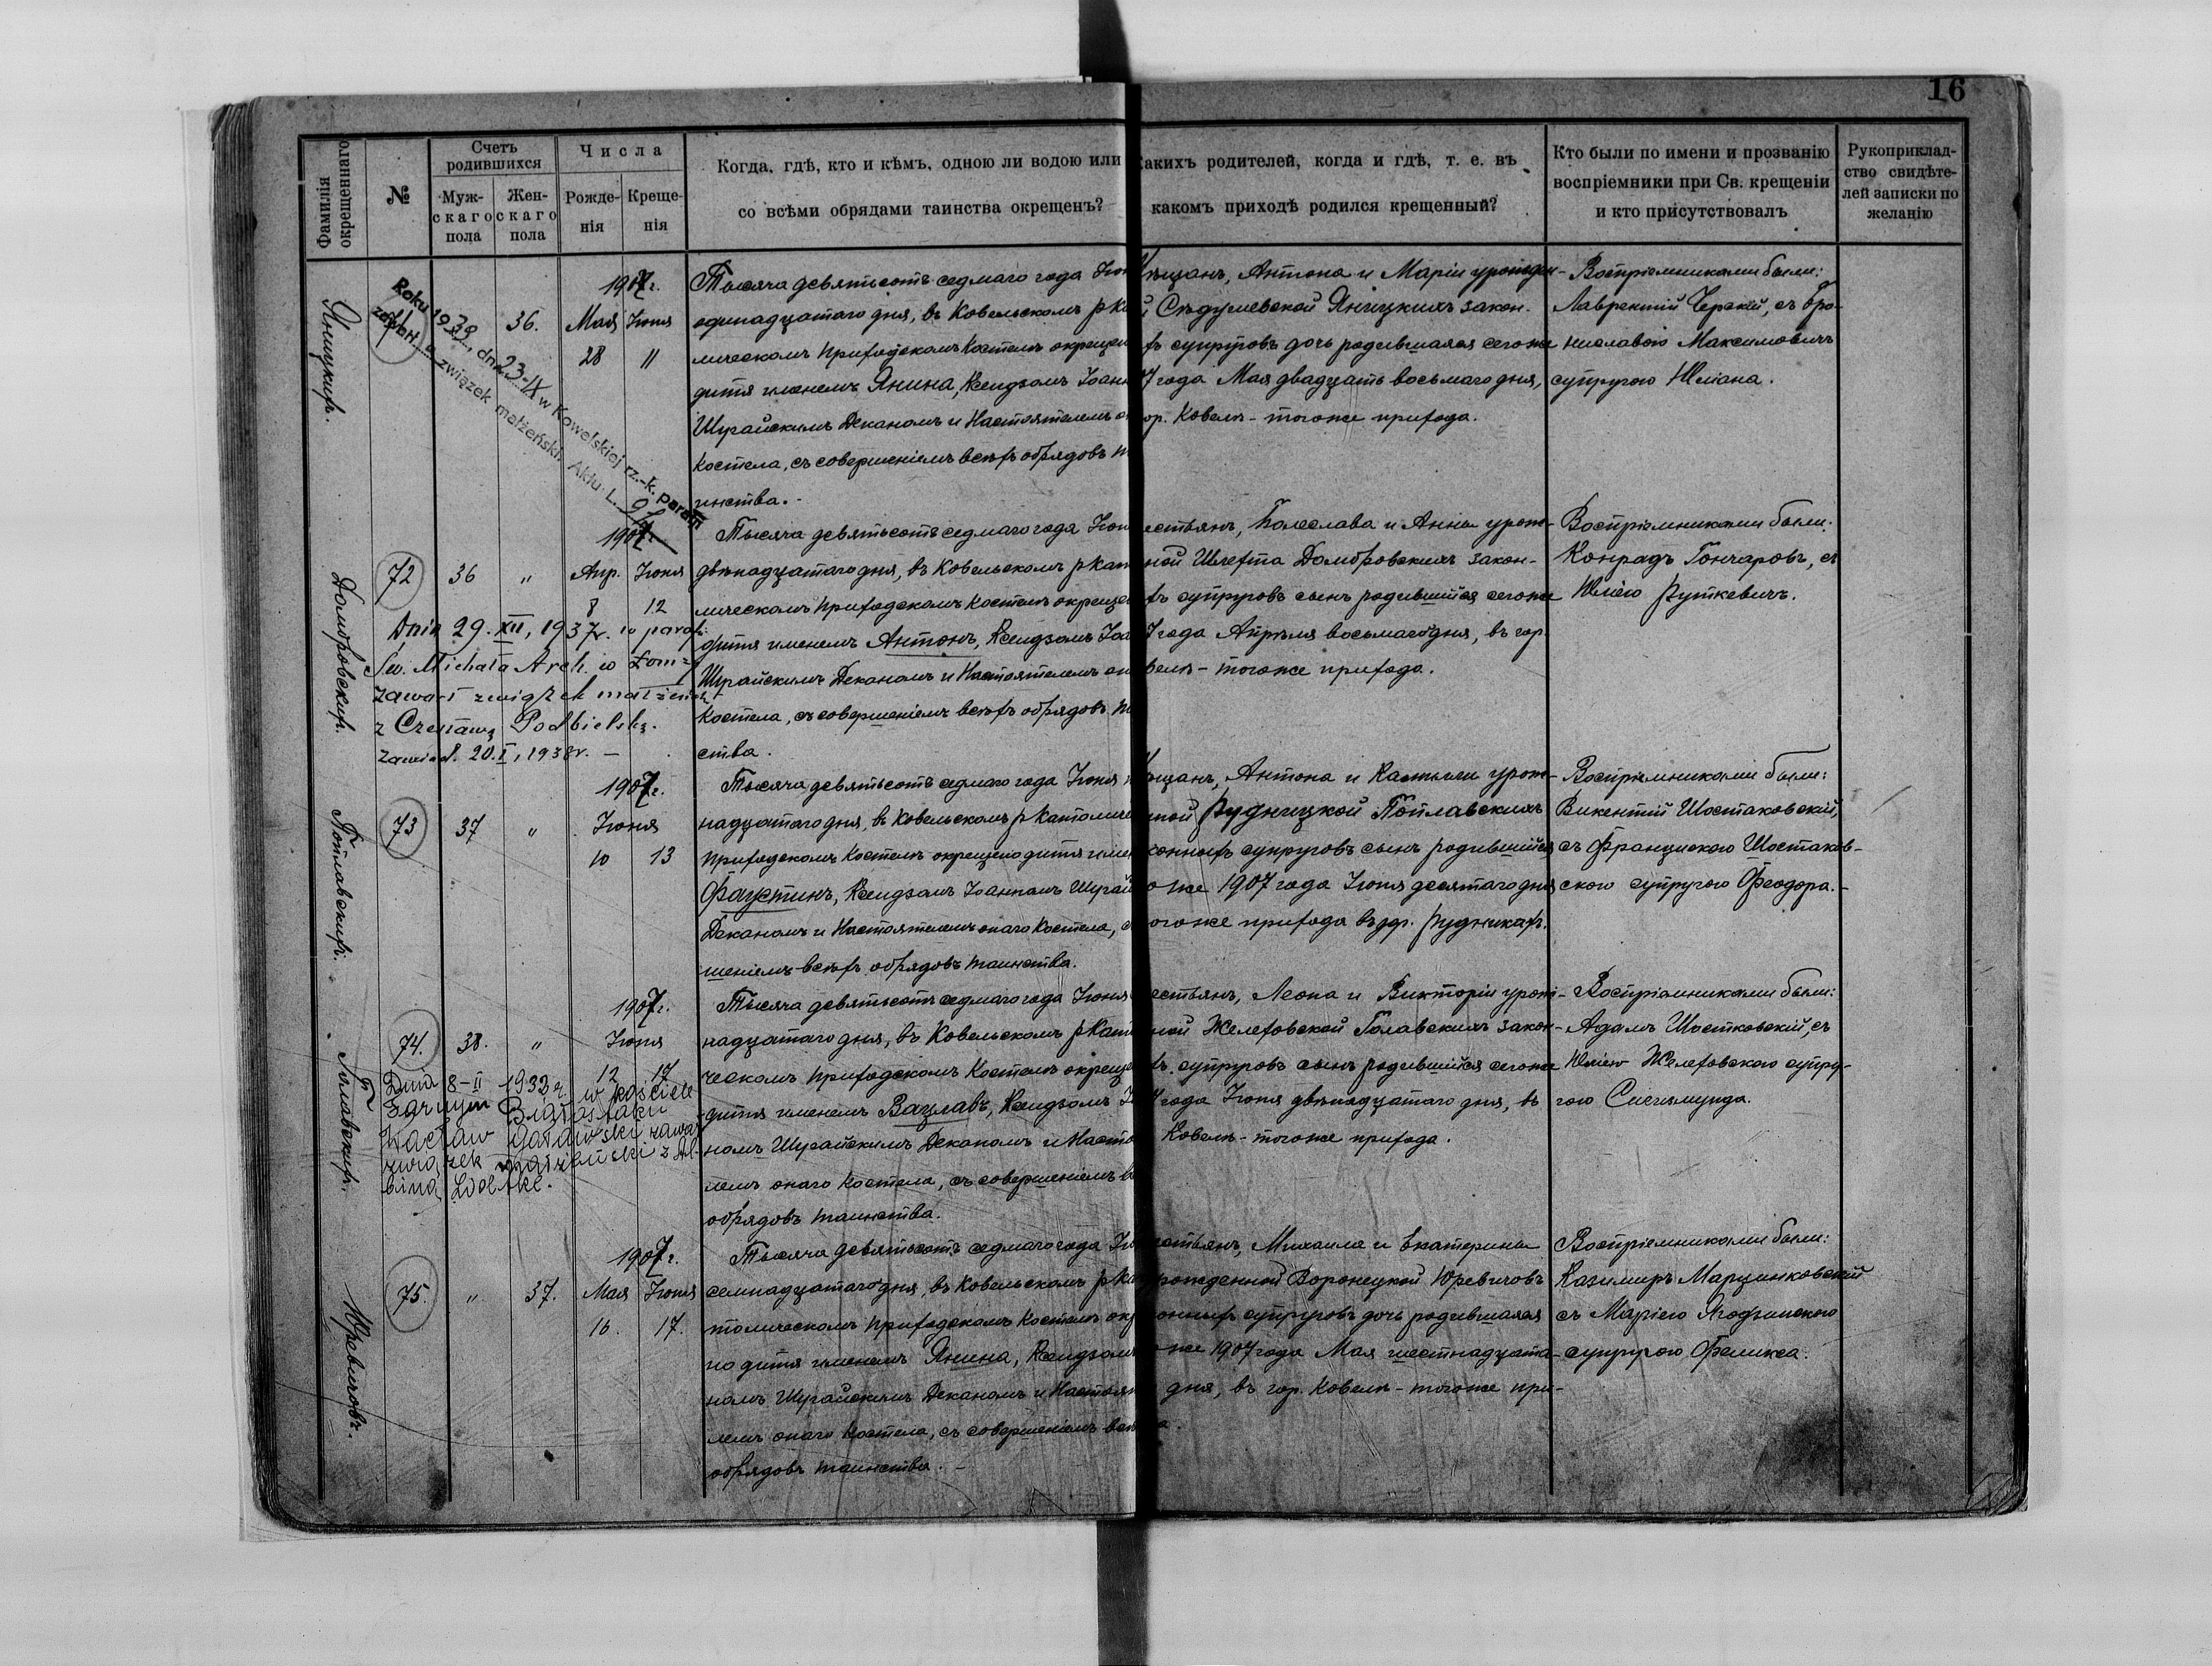 16
Фамилія окрещеннаго
№
Счетъ родившихся
Муж-скаго пола
Жен-скаго пола
Числа
Рожде-нія
Креще-нія
Когда, гдѣ, кто и кѣмъ, одною ли водою или
со всѣми обрядами таинства окрещенъ?
какихъ родителей, когда и гдѣ, т. е. въ
какомъ приходѣ родился крещенный?
Кто были по имени и прозванію
воспріемники при Св. крещеніи
и кто присутствовалъ
Рукоприклад-
ство свидѣте-
лей записки по
желанію
Яницкихъ.
36.
1907г.
Мая Іюня
28 11
Roku 1939, dn. 23-IX w Kowelskiej rz.-k. parafii
związek małżeński. Aktu L.
Тысяча девятьсотъ седмаго года Іюн
одинадцатаго дня, въ Ковельскомъ рКа
лическомъ приходскомъ Костелѣ окрещен
дитя именемъ Янина, Ксендзомъ Іоанн
Шугайскимъ Деканомъ и Настоятелемъ о
Костела, съ совершеніемъ всѣхъ обрядовъ т
инства.
ѣщанъ, Антона и Маріи урожден-
й Сѣдулевской Яницкихъ закон.
хъ супруговъ дочь родившаяся сегоже
7 года Мая двадцать восьмаго дня,
гор. Ковелѣ - тогоже прихода.
Воспріемниками были:
Лаврентій Черскій, съ Бро-
ниславою Максимовичъ
супругою Юліана.
Домбровскихъ.
72
36
"
1907
Апр. Іюня
8 12
Dnia 29. XII, 1937r. w parafi
Św. Michała Arch. w Łomży
zawarł związek małżeński
z Czesławą Podbielską.
zawiad. 20. I, 1938r. —
Тысяча девятьсотъ седмаго года Іюн
двѣнадцатаго дня, въ Ковельскомъ рКат
лическомъ приходскомъ Костелѣ окреще
дитя именемъ Антонъ, Ксендзомъ Іоа
Шугайскимъ Деканомъ и Настоятелемъ он
Костела, съ совершеніемъ всѣхъ обрядовъ т
ства.
естьянъ, Болеслава и Анны урож-
ной Шлехта Домбровскихъ закон-
хъ супруговъ сынъ родившійся сегоже
7 года Апрѣля восьмаго дня, въ гор.
велѣ - тогоже прихода.
Воспріемниками были:
Конрадъ Гончаровъ, съ
Юліею Руткевичъ.
Потлавскихъ.
73
37
"
1907г.
Іюня
10 13
Тысяча девятьсотъ седмаго года Іюня
надцатаго дня, въ Ковельскомъ рКатоличе
приходскомъ Костелѣ окрещено дитя име
Фаустинъ, Ксендзомъ Іоанномъ Шугай
Деканомъ и Настоятелемъ онаго Костела, с
шеніемъ всѣхъ обрядовъ таинства.
ѣщанъ, Антона и Камиллы урож-
ной Рудницкой Потлавскихъ
конныхъ супруговъ сынъ родившійся
оже 1907 года Іюня десятаго дня
огоже прихода въ дер. Рудникахъ.
Воспріемниками были:
Викентій Шостаковскій,
съ Францискою Шостаков-
скою супругою Феодора.-
Голавскихъ.
74.
38.
"
1907г.
Іюня
12 17
Dnia 8-II 1932 r. w kościele
Farnym Białostoku
Wacław Gaławski zawar
związek małżeński z Al-
biną
Тысяча девятьсотъ седмаго года Іюня
надцатаго дня, въ Ковельскомъ рКат
ческомъ приходскомъ Костелѣ окреще
дитя именемъ Вацлавъ, Ксендзомъ Іо
номъ Шугайскимъ Деканомъ и Насто
лемъ онаго Костела, съ совершеніемъ в
обрядовъ таинства.
естьянъ, Леона и Викторіи урож-
ной Желеховской Голавскихъ закон-
хъ супруговъ сынъ родившійся сегоже
7 года Іюня двѣнадцатаго дня, въ
Ковелѣ - тогоже прихода.
Воспріемниками были:
Адамъ Шостковскій, съ
Юліею Желеховскою супру-
гою Сигизмунда.
Юревичовъ.
75.
"
37.
1907г.
Мая Іюня
16. 17.
Тысяча девятьсотъ седмаго года Ію
семнадцатаго дня, въ Ковельскомъ рКа
толическомъ приходскомъ Костелѣ окр
но дитя именемъ Янина, Ксендзомъ
номъ Шугайскимъ Деканомъ и Настоят
лемъ онаго Костела, съ совершеніемъ всѣ
обрядовъ таинства. -
естьянъ, Михаила и Екатерины
рожденной Воронецкой Юревичовъ
онныхъ супруговъ дочь родившаяся
оже 1907 года Мая шестнадцата-
дня, въ гор. Ковелѣ - тогоже при-
а.
Воспріемниками были:
Казимиръ Марцинковскій
съ Маріею Ягодзинскою
супругою Феликса.